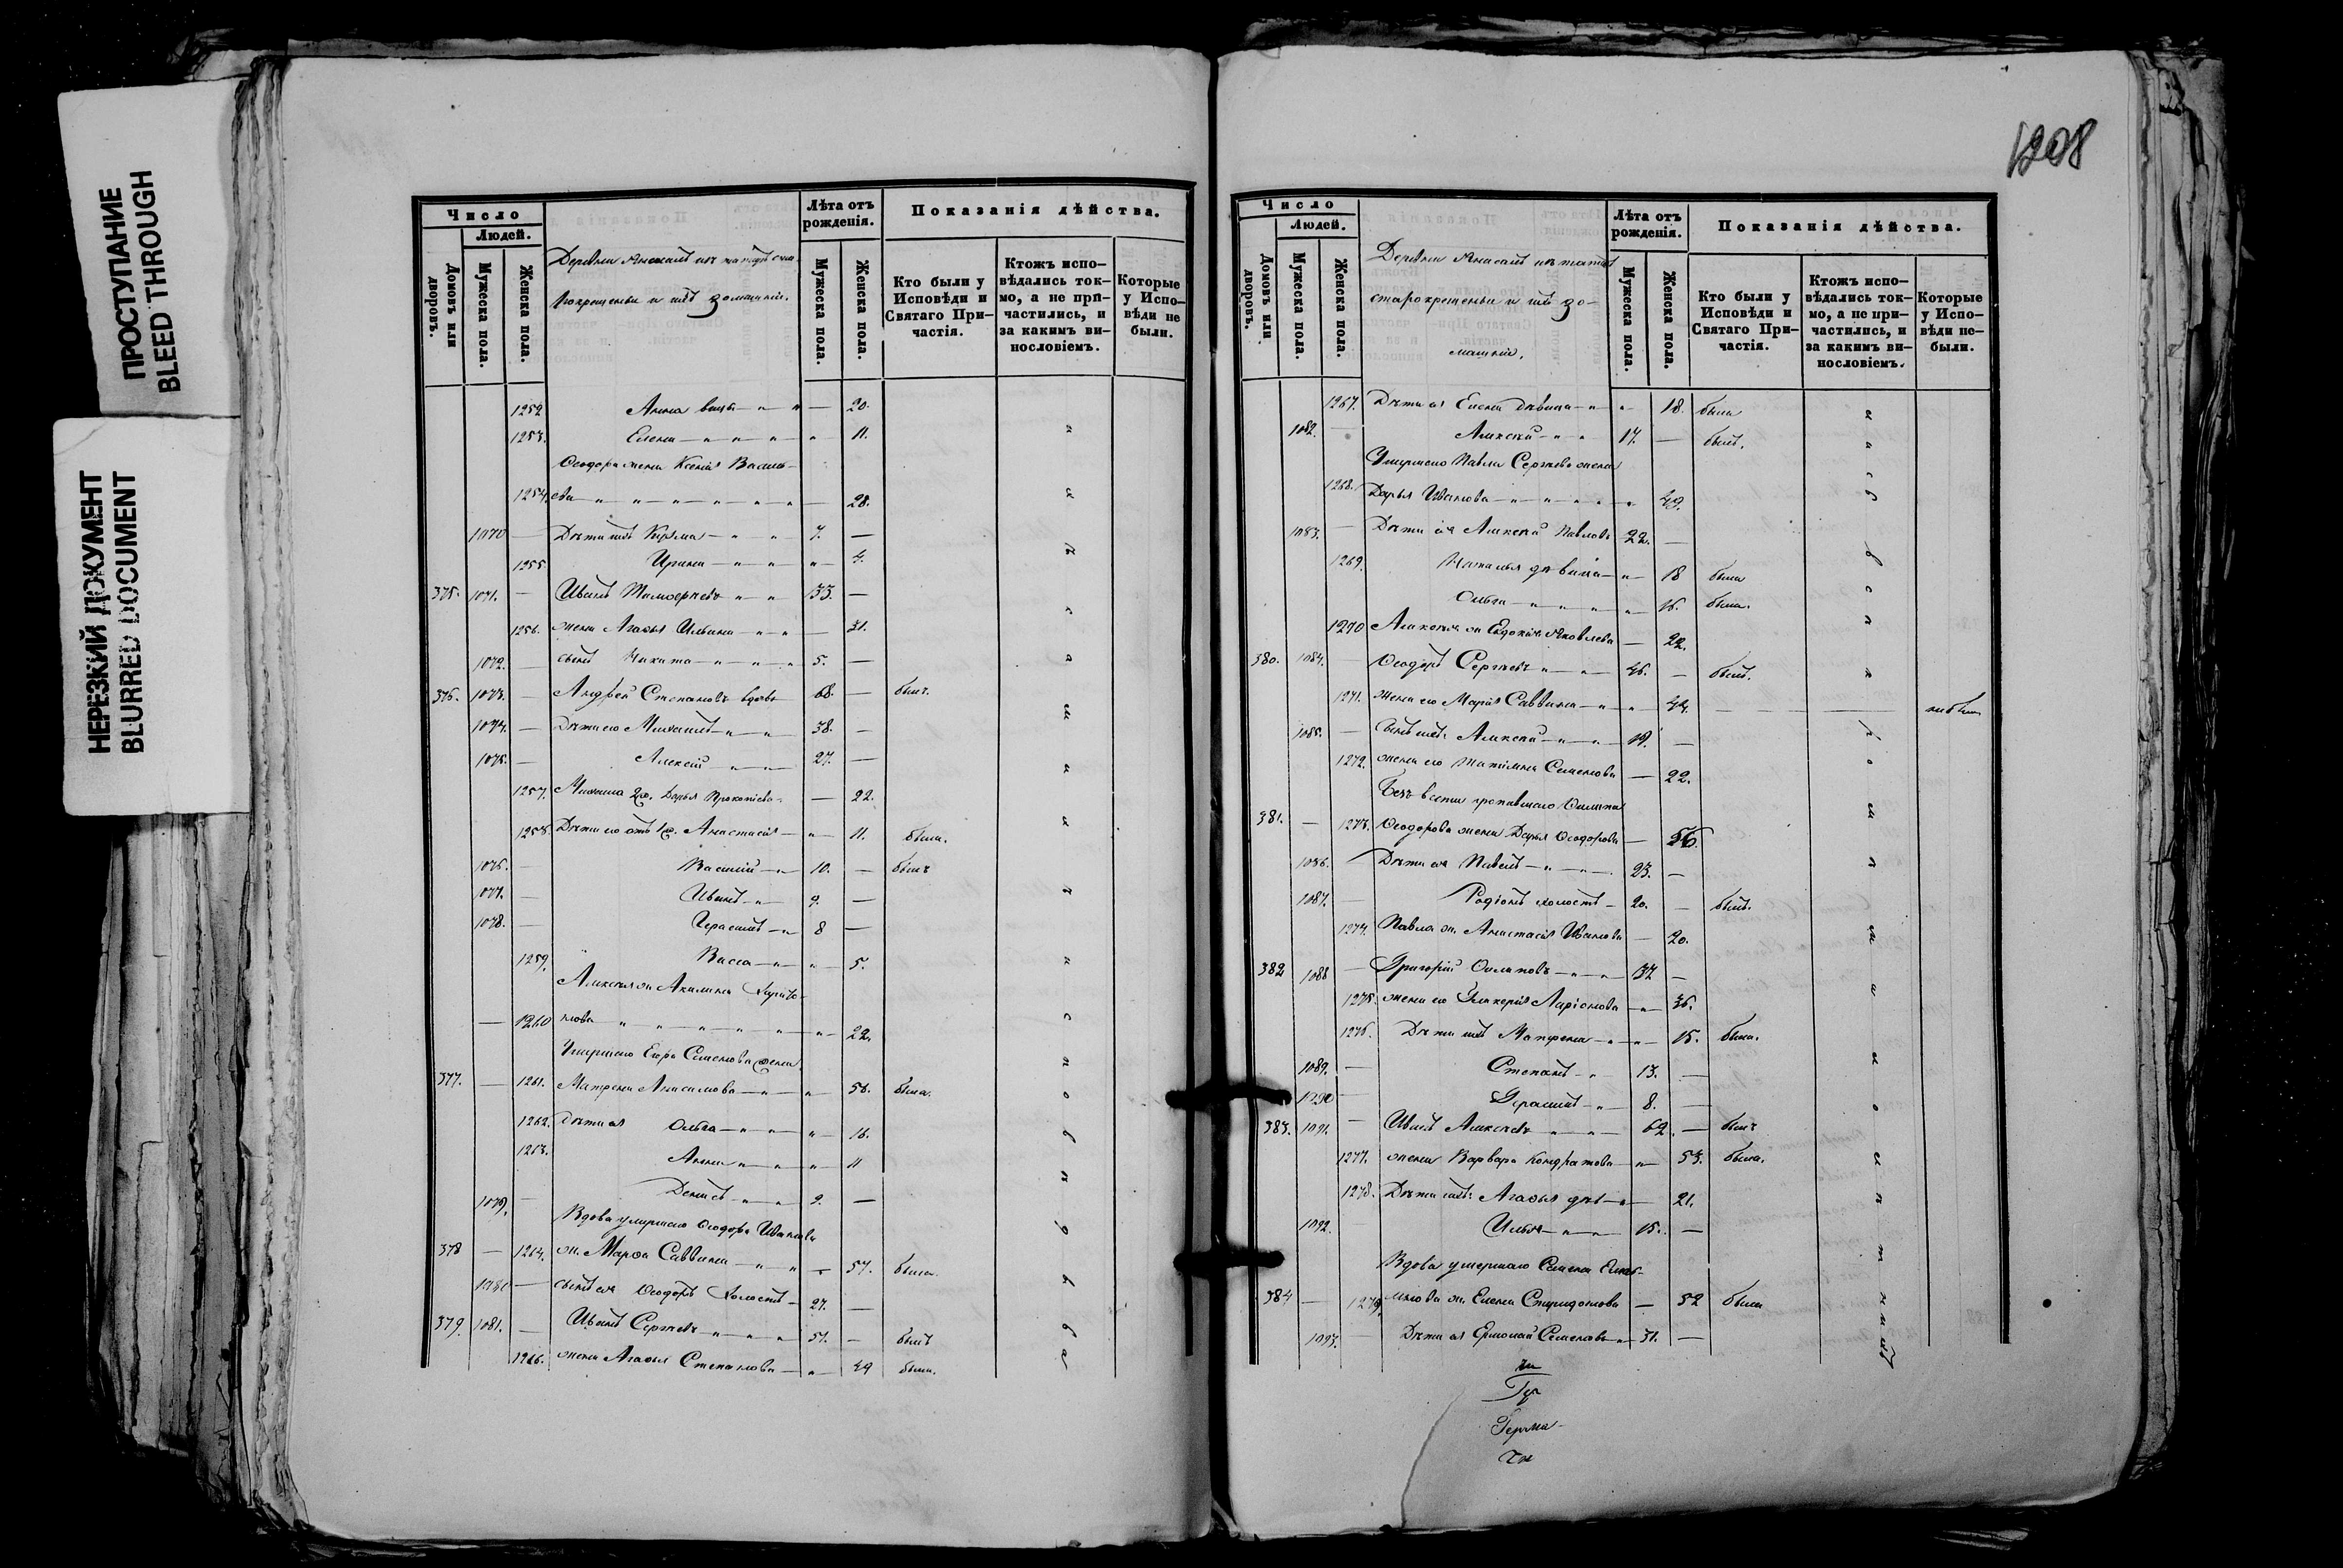 ПРОСТУПАНИЕ
BLEED THROUGH
НЕРЕЗКИЙ ДОКУМЕНТ
BLURRED DOCUMENT
Число
Людей.
Домовъ или дворовъ.
Мужеска пола.
Женска пола.
Деревни
покрещены и ихъ домашніи.
Лѣта отъ рожденія.
Мужеска пола.
Женска пола.
Показанія дѣйства.
Кто были у Исповѣди и Святаго Причастія.
Ктожъ исповѣдались токмо, а не причастились, и за какимъ винословіемъ.
Которые у Исповѣди не были.
1252. Анна 20.
1253. Елена 11.
Ѳеодора жена Ксенія Василь-
1254. ева 28.
1070 Дѣти ихъ 7.
1255. Ирина 4.
375. 1071. Иванъ 33.
1256. жена Агаѳья Ильина 31.
1072. сынъ Никита 5.
376. 1073. Андрей Степановъ вдовъ 68. былъ.
1074. Дѣти его Михаилъ 38.
1075. Алексій 27.
1257. Михаила 2ж. Дарья Прокопіева 22.
1258. Дѣти его отъ 1ж. Анастасія 11. была.
1076. Василій 10. былъ
1077. Иванъ 9.
1078. Герасимъ 8
1259. Васса 5.
Алексѣя ж. Акилина Харито-
1260 нова 22.
Умершаго Егора Семенова жена
377. 1261. Матрена Анисимова 58. была.
1262. Дѣти ея Ольга 16.
1263. Анна 11
1079. Денисъ 9.
Вдова умершаго Ѳеодора Иванова
378 1264. ж. Марѳа Саввина 57. была.
1080 сынъ ея Ѳеодоръ холостъ 27.
379. 1081. Иванъ Сергѣевъ 51. былъ
1266. жена Агаѳья Степанова 49 была.
1208
Число
Людей.
Домовъ или дворовъ.
Мужеска пола.
Женска пола.
Деревни
старокрещены и ихъ до-
машніи.
Лѣта отъ рожденія.
Мужеска пола.
Женска пола.
Показанія дѣйства.
Кто были у Исповѣди и Святаго Причастія.
Ктожъ исповѣдались токмо, а не причастились, и за какимъ винословіемъ.
Которые у Исповѣди небыли.
1267. Дѣти ея Елена дѣвица 18. была
1082. Алексѣй 17. былъ.
Умершаго Павла Сергѣева жена
1268. Дарья Иванова 49.
1083. Дѣти ея Алексѣй Павловъ 22.
1269. Наталья дѣвица 18 была
Ольга 16. была.
1270 Алексѣя ж. Евдокія Яковлева 22.
380. 1084. Ѳеодоръ Сергѣевъ 46. былъ.
1271. жена его Марія Саввина 44. не была
1085. Сынъ ихъ Алексѣй 19.
1272. жена его Татіяна Семенова 22.
Безъ вести пропавшаго Филипа
381. 1273. Ѳеодорова жена Дарья Ѳеодорова 56.
1086. Дѣти ея Павелъ 23.
1087. Родіонъ холостъ 20. былъ.
1274. Павла ж. Анастасія Иванова 20.
382 1088 Григорій 37
1275. жена его Гликерія Ларіонова 36.
1276. Дѣти ихъ Матрена 15. была.
1089. Степанъ 13.
1090 Герасимъ 8.
383. 1091. Иванъ Алексѣевъ 62. былъ
1277. жена Варвара Кондратова 53. была.
1278. Дѣти ихъ: Агаѳья дѣв 21.
1092. Илья 15.
Вдова умершаго Семена Емель-
384 1279. янова ж. Елена Спиридонова 52 была
1093. Дѣти ея Ермолай Семеновъ 31.